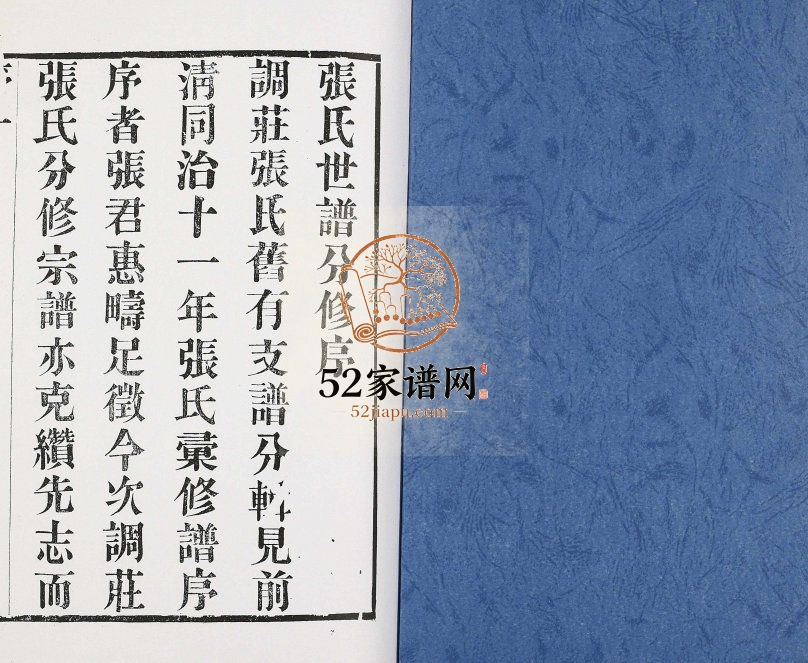 張氏世譜分修序
調莊張氏舊有支譜分輯見前
清同治十一年張氏彙修譜序
序者張君惠疇足徵今次調莊
張氏分修宗譜亦克纘先志而
52家谱网
52jiapu.com